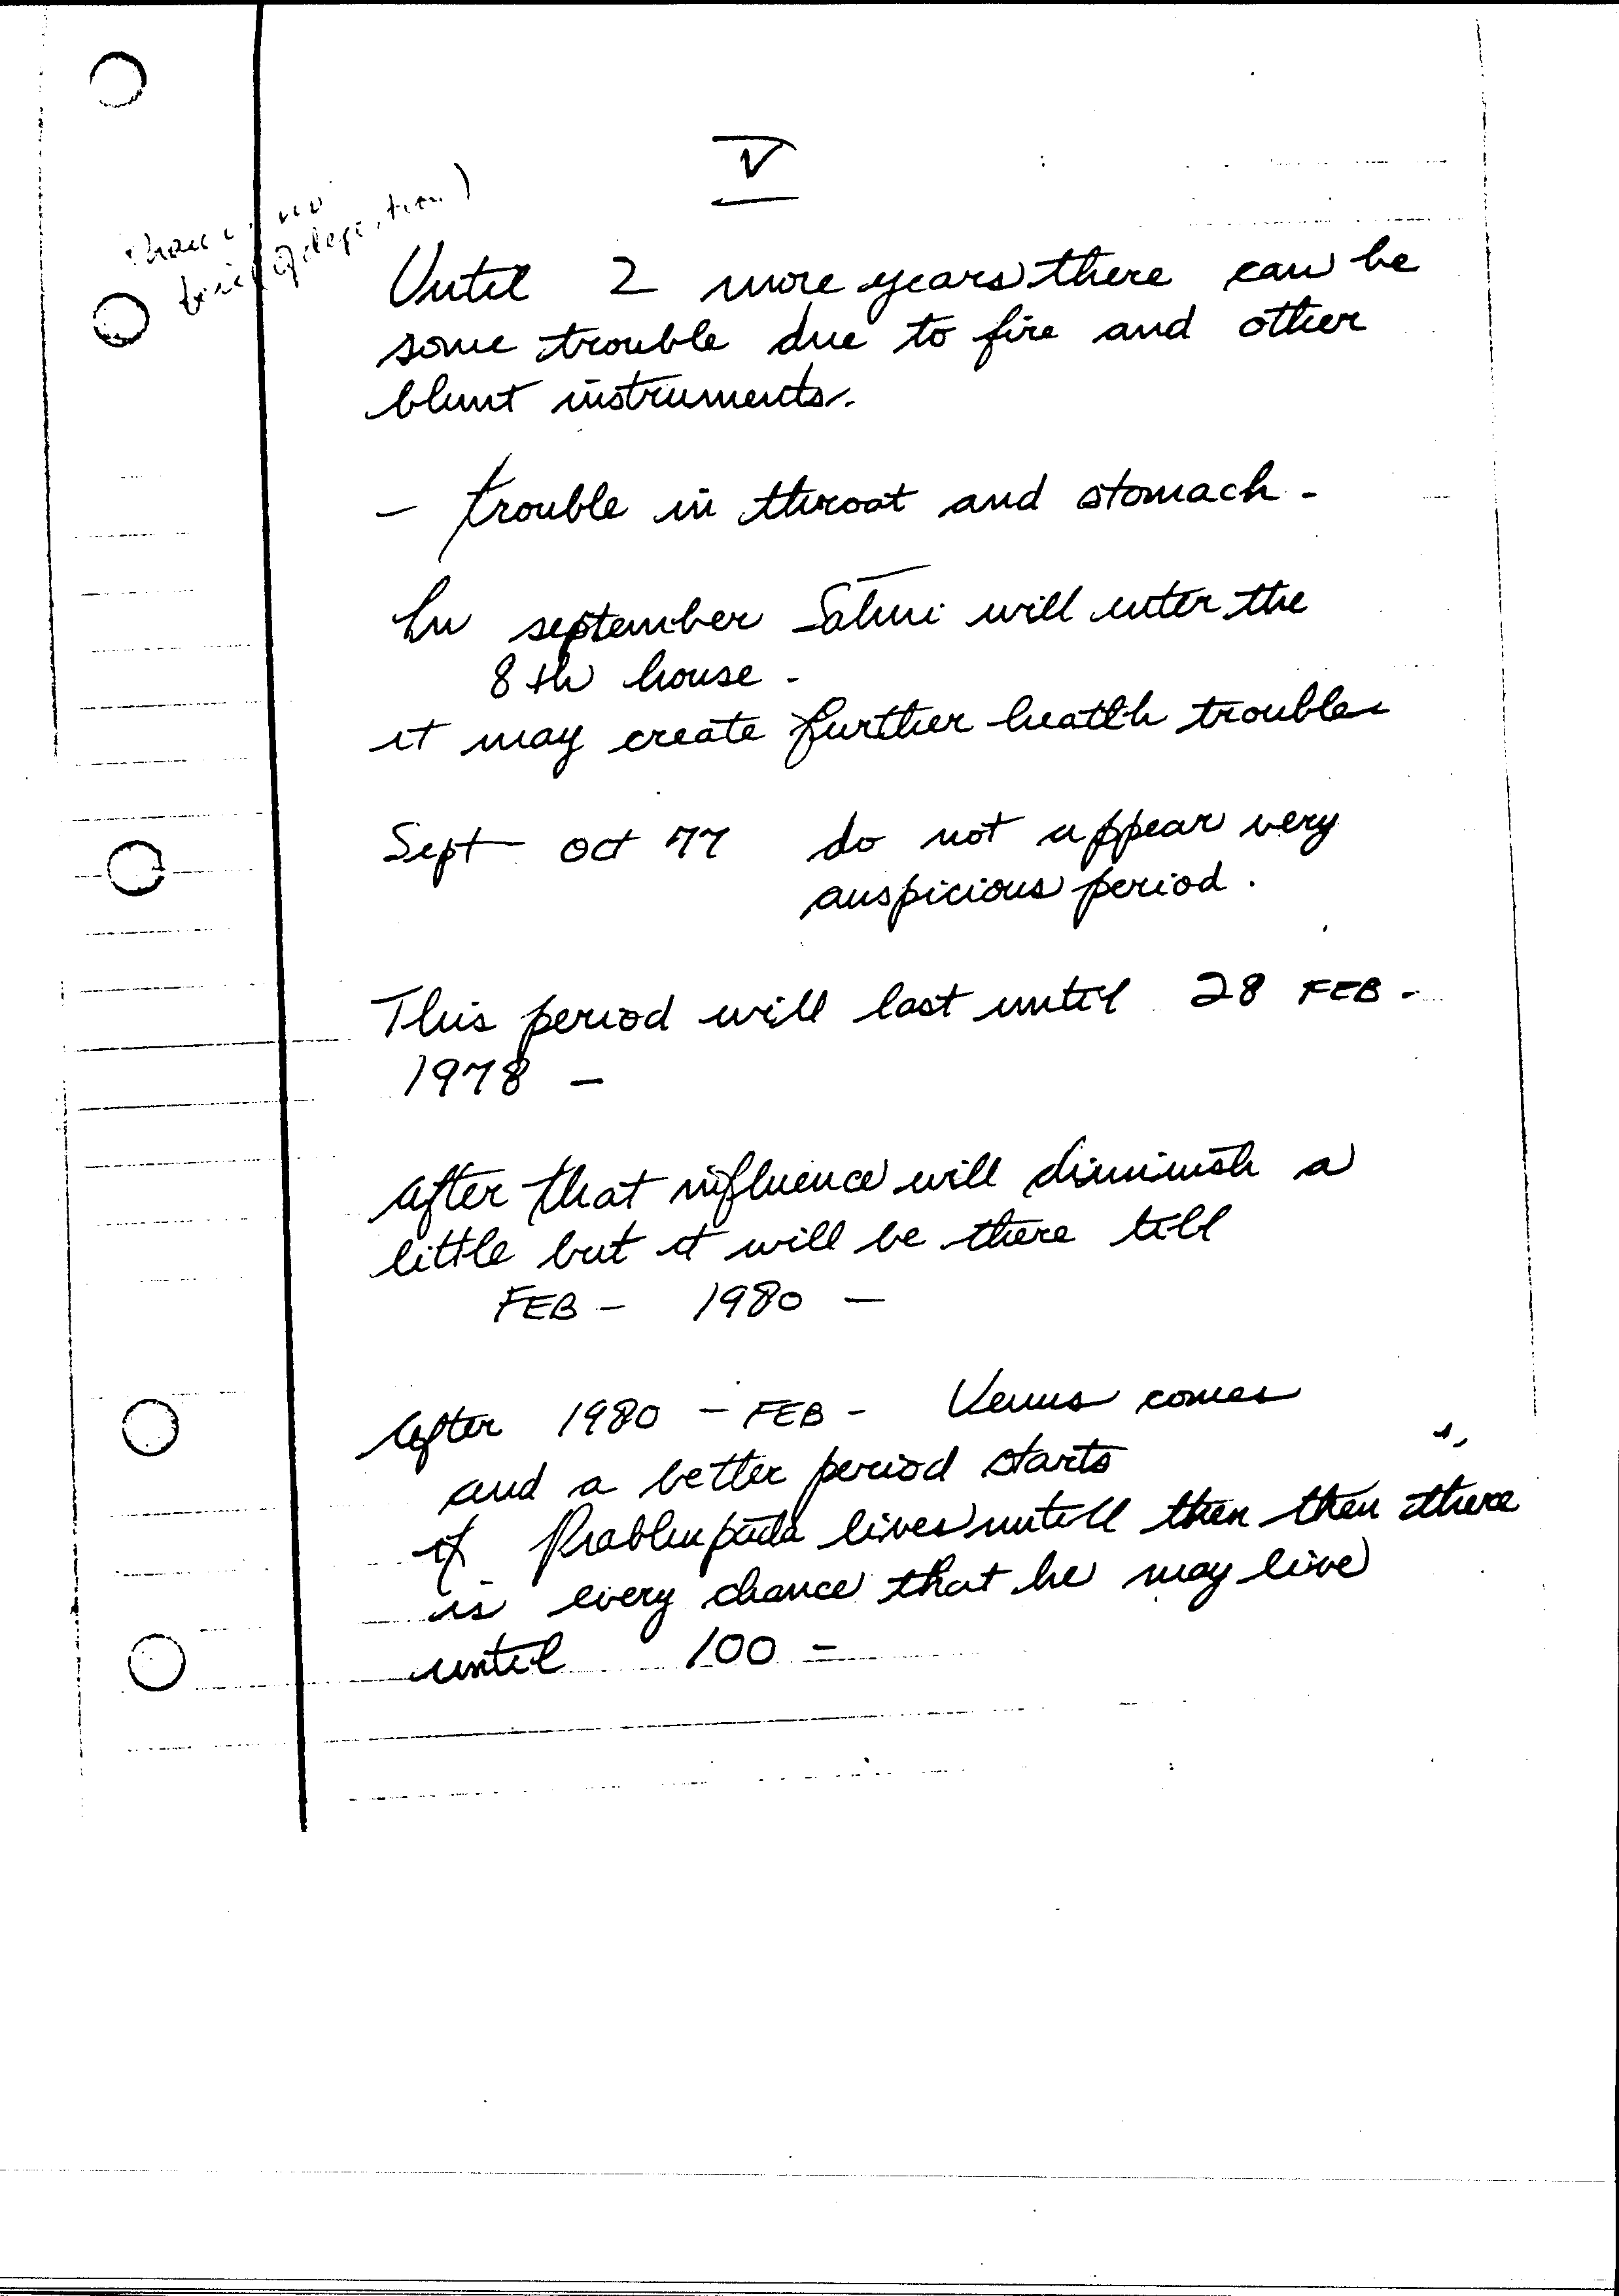 V
Until 2 more years there can be
some trouble due to fire and other
blunt instruments.
- trouble in throat and stomach -
In september will enter the
8th house -
it may create further health troubles
Sept - oct 77 do not appear very
auspicious period.
This period will last until 28 FEB -
1978 -
After that influence will diminish a
little but it will be there till
FEB - 1980 -
After 1980 - FEB - Venus comes
and a better period starts
if Prabhupāda lives untill then then there
is every chance that he may live
until 100 -